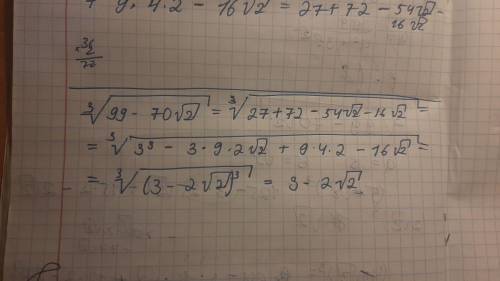 + 9 · 4 · 2 - 16√2 = 27 + 72 - 54√2 -
16√2
∛(99 - 70√2) = ∛(27 + 72 - 54√2 - 16√2) =
= ∛(3³ - 3 · 9 · 2√2 + 9 · 4 · 2 - 16√2) =
= ∛((3 - 2√2)³) = 3 - 2√2